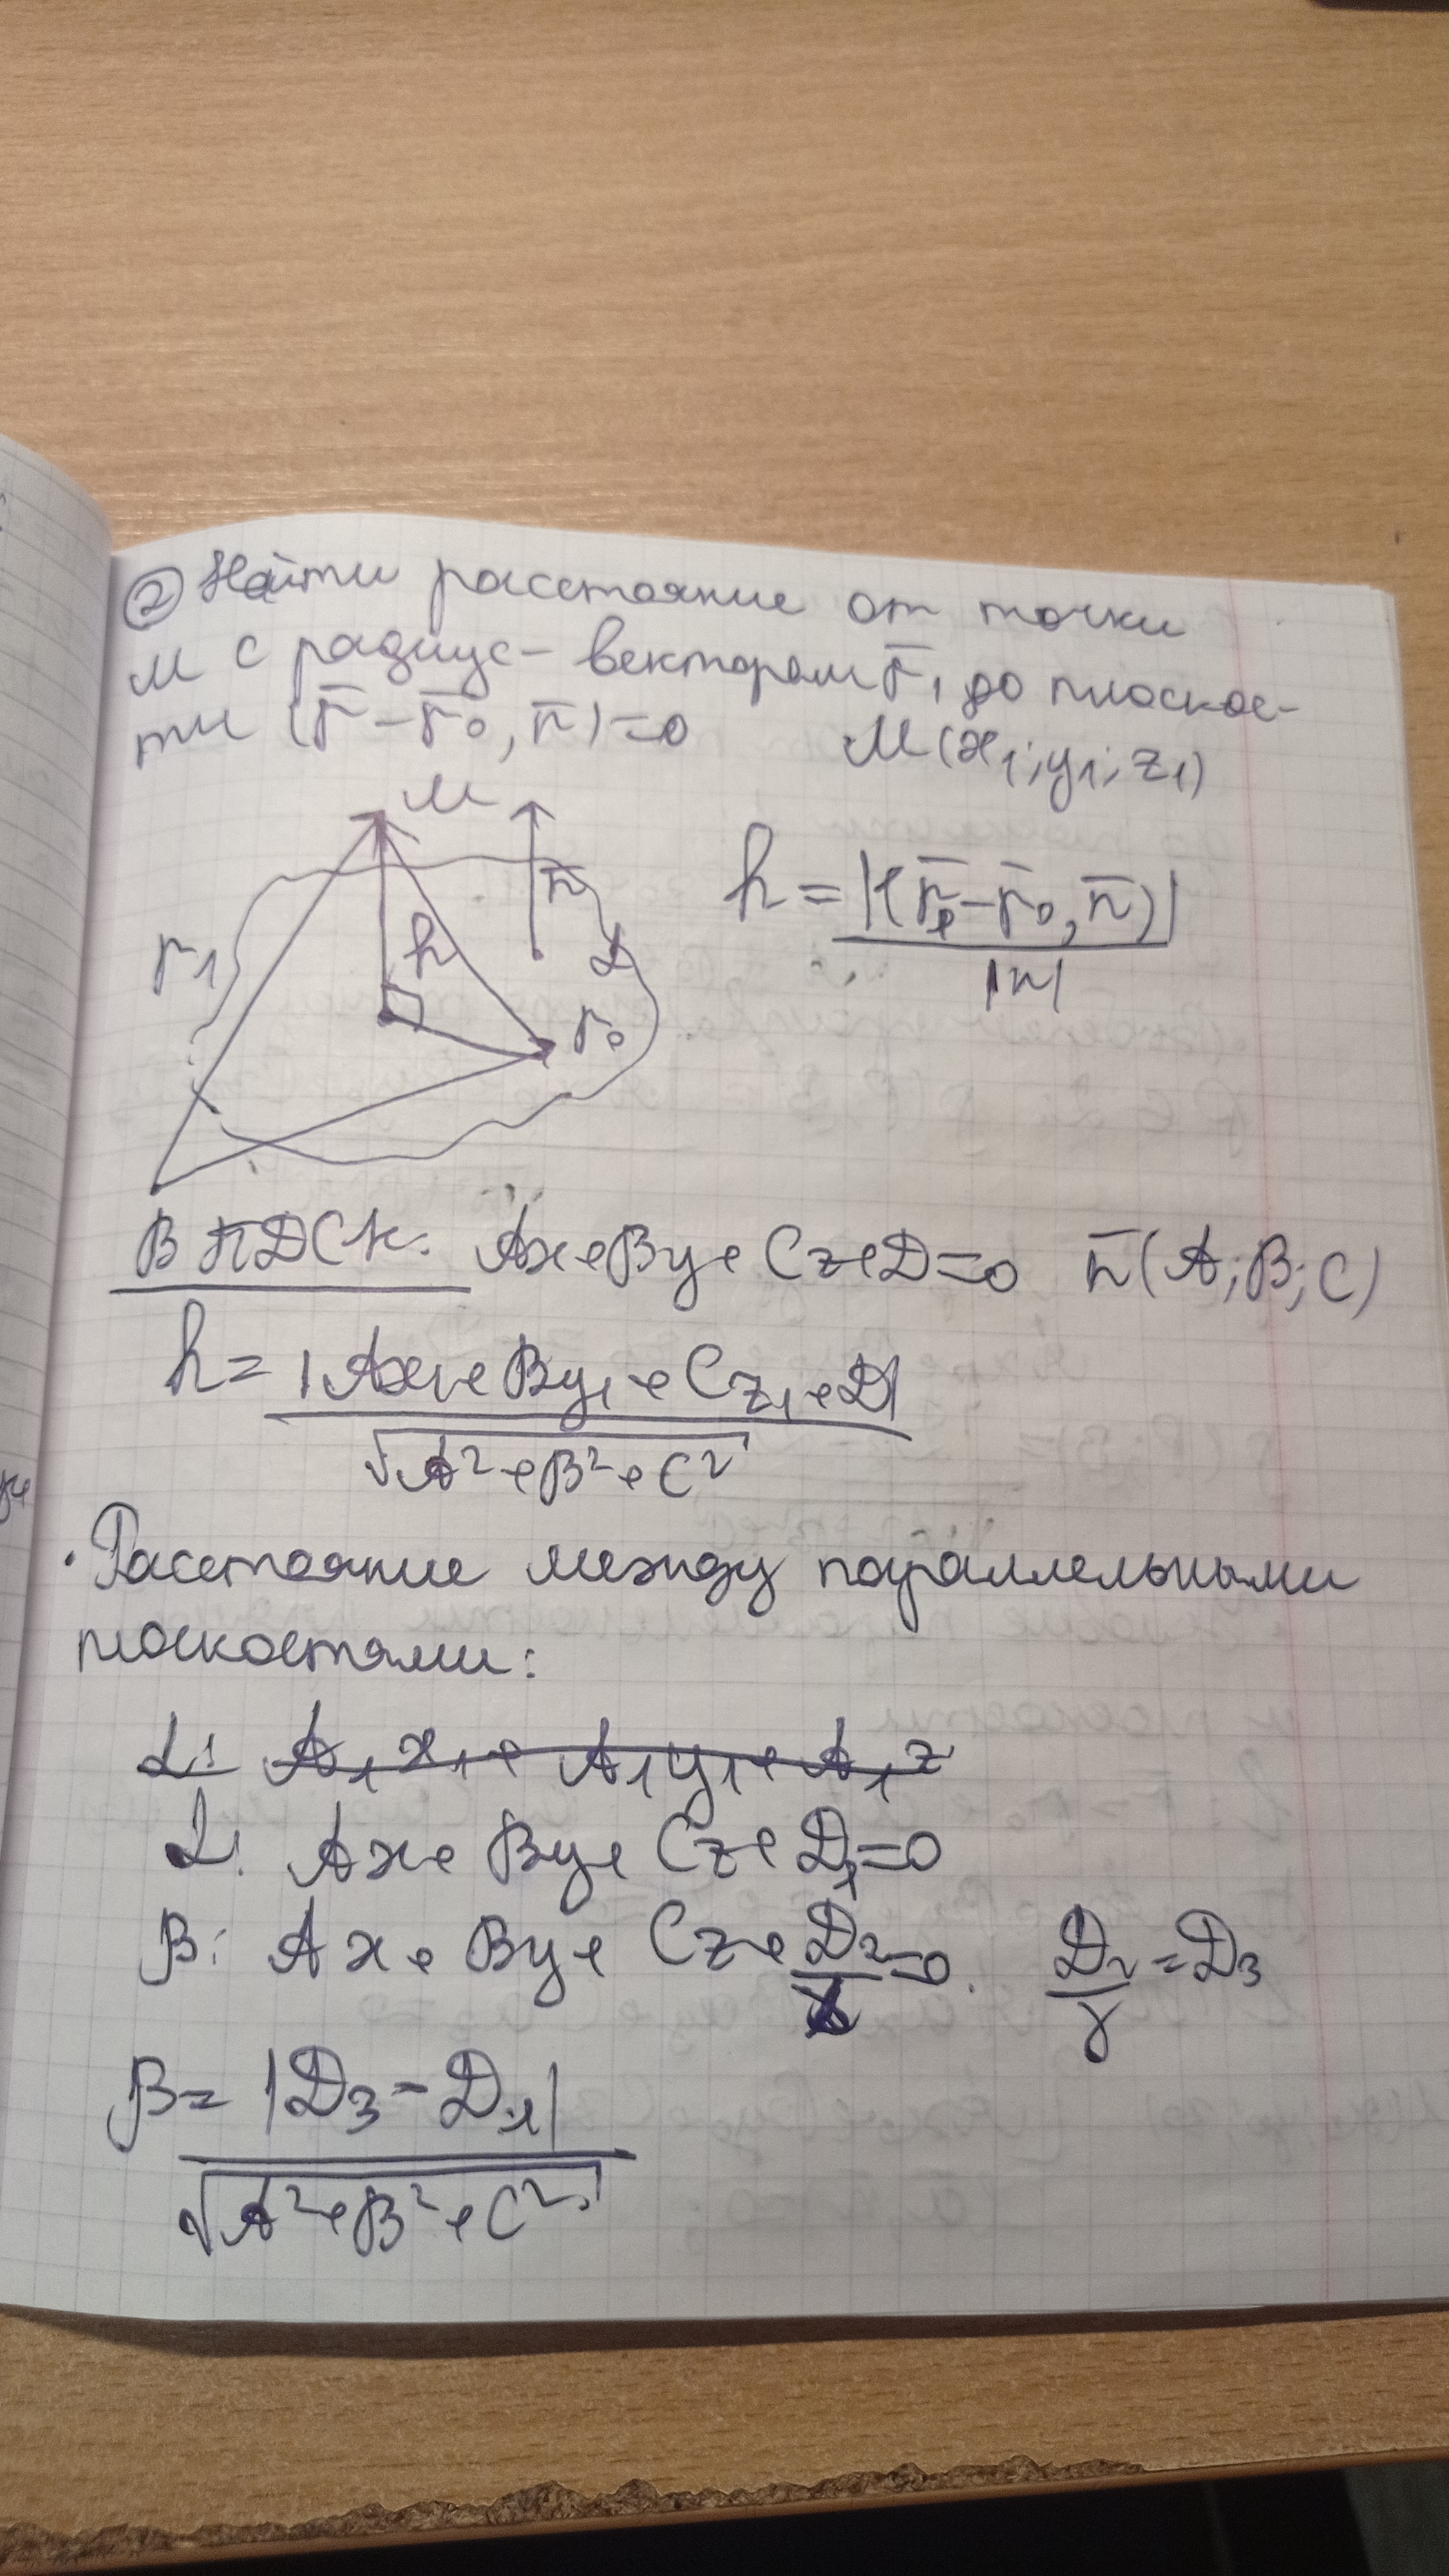 ② Найти расстояние от точки
М с радиус-вектором r̅₁ до плоскос-
ти (r̅ - r̅₀, n̅) = 0 M(x₁; y₁; z₁)
M
n̅
r₁
h
α
r₀
h = |(r̅₁ - r̅₀, n̅)| / |n|
В ПДСК: Ax + By + Cz + D = 0 n̅(A; B; C)
h = |Ax₁ + By₁ + Cz₁ + D| / √(A² + B² + C²)
· Расстояние между параллельными
плоскостями:
α: A₁x₁ + A₁y₁ + A₁z
α: Ax + By + Cz + D₁ = 0
β: Ax + By + Cz + D₂/γ = 0. D₂/γ = D₃
β = |D₃ - D₁| / √(A² + B² + C²)